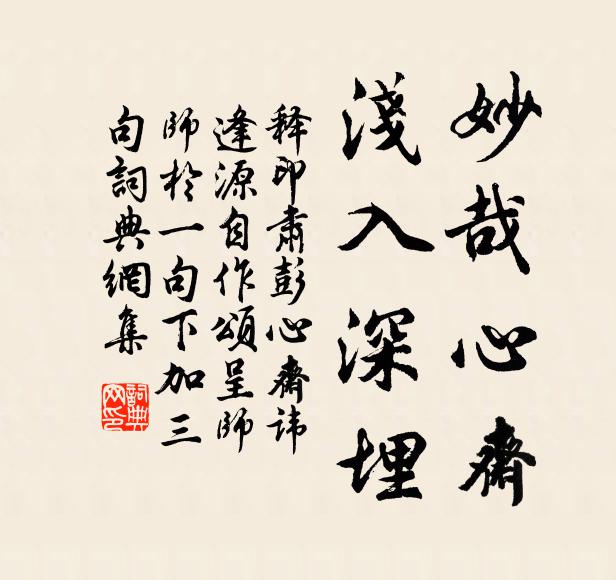 妙哉心齋
淺入深埋
释印肅彭心齋諱
逢源自作頌呈師
師於一句下加三
句詞典網集
詞典
网印